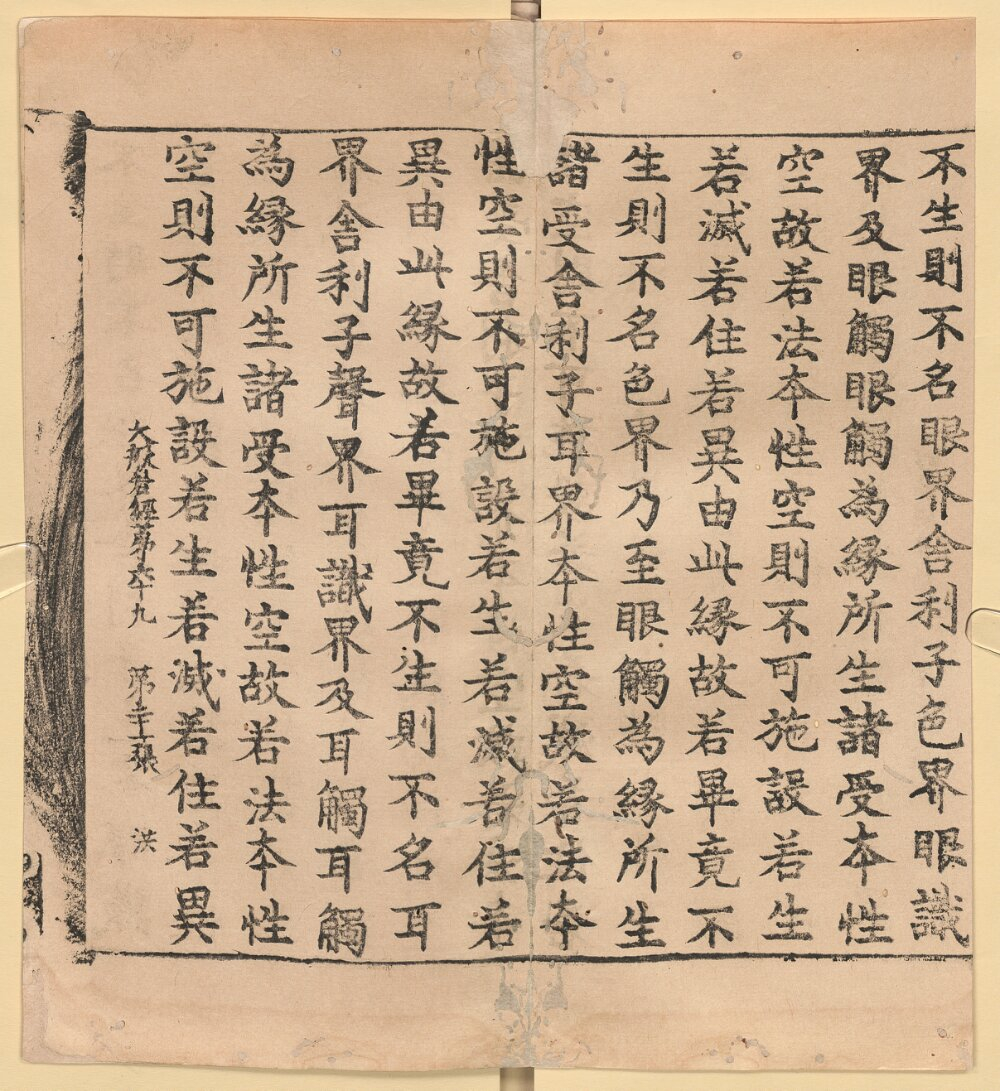 不生則不名眼界舍利子色界眼識
界及眼觸眼觸為緣所生諸受本性
空故若法本性空則不可施設若生
若滅若住若異由此緣故若畢竟不
生則不名色界乃至眼觸為緣所生
諸受舍利子耳界本性空故若法本
性空則不可施設若生若滅若住若
異由此緣故若畢竟不生則不名耳
界舍利子聲界耳識界及耳觸耳觸
為緣所生諸受本性空故若法本性
空則不可施設若生若滅若住若異
大般若經第六十九 第二十張 洪